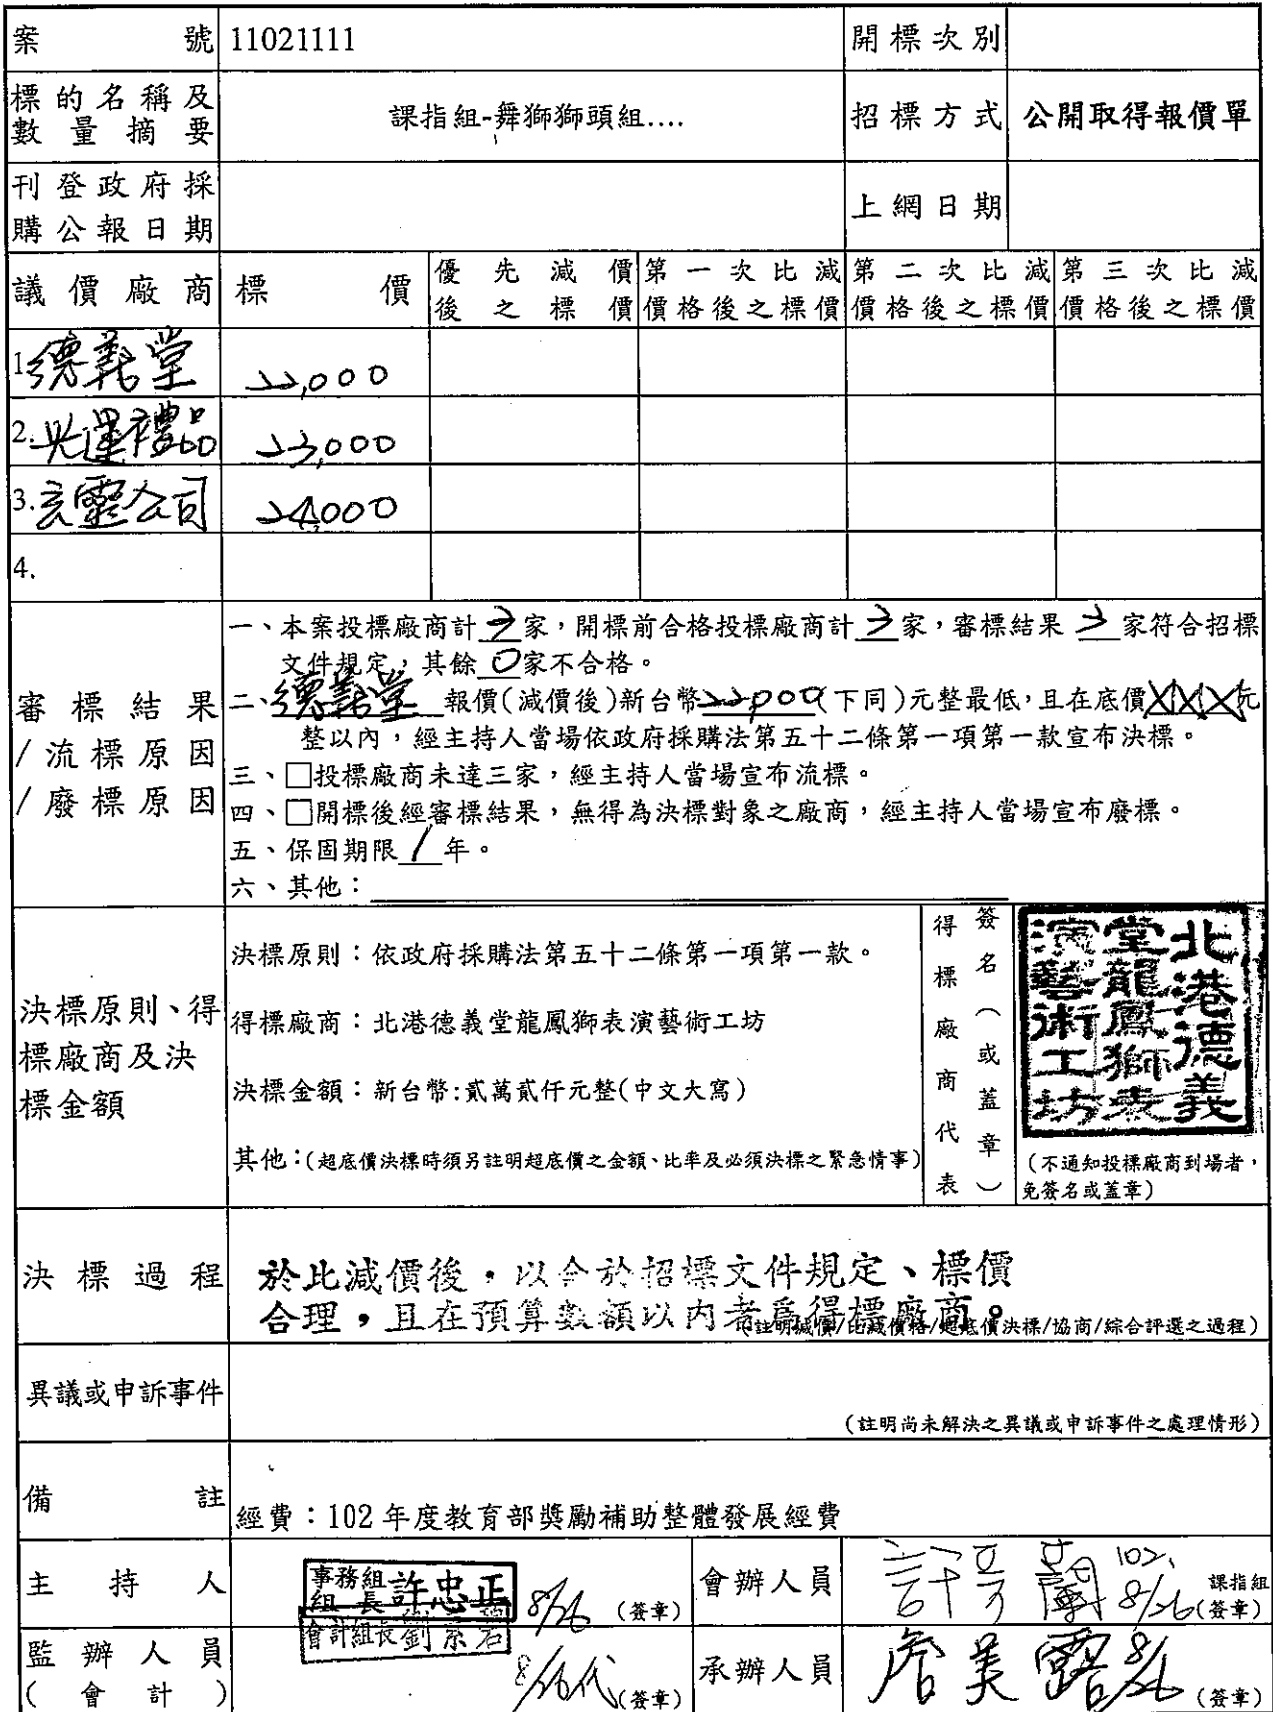 案號 11021111 開標次別
標的名稱及數量摘要 課指組-舞獅獅頭組.... 招標方式 公開取得報價單
刊登政府採購公報日期 上網日期
議價廠商 標價 優先減價後之標價 第一次比減價格後之標價 第二次比減價格後之標價 第三次比減價格後之標價
1. 德義堂 22,000
2. 興運禮品 23,000
3. 玄靈公司 24,000
4.
審標結果/流標原因/廢標原因
一、本案投標廠商計 3 家，開標前合格投標廠商計 3 家，審標結果 3 家符合招標
文件規定，其餘 0 家不合格。
二、德義堂 報價(減價後)新台幣 22,000 (下同)元整最低，且在底價XXX元
整以內，經主持人當場依政府採購法第五十二條第一項第一款宣布決標。
三、□投標廠商未達三家，經主持人當場宣布流標。
四、□開標後經審標結果，無得為決標對象之廠商，經主持人當場宣布廢標。
五、保固期限 1 年。
六、其他：
決標原則、得標廠商及決標金額
決標原則：依政府採購法第五十二條第一項第一款。
得標廠商：北港德義堂龍鳳獅表演藝術工坊
決標金額：新台幣:貳萬貳仟元整(中文大寫)
其他：(超底價決標時須另註明超底價之金額、比率及必須決標之緊急情事)
得標廠商代表 簽名（或蓋章）
北港德義堂龍鳳獅表演藝術工坊
(不通知投標廠商到場者，
免簽名或蓋章)
決標過程
於此減價後，以合於招標文件規定、標價
合理，且在預算數額以內者為得標廠商。
(註明減價/比減價格/超底價決標/協商/綜合評選之過程)
異議或申訴事件
(註明尚未解決之異議或申訴事件之處理情形)
備註
經費：102 年度教育部獎勵補助整體發展經費
主持人 事務組組長 許忠正 8/26 (簽章) 會辦人員 102. 8/26 課指組(簽章)
監辦人員(會計) 會計組長 8/26代 (簽章) 承辦人員 詹美露 8/26 (簽章)